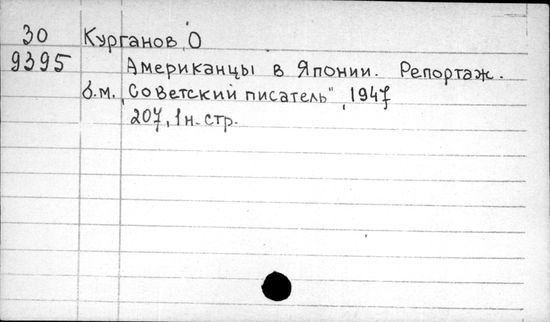 30 Курганов, О
9395 Американцы в Японии. Репортаж.
б.м. „Советский писатель", 1947
207, 1 н. стр.